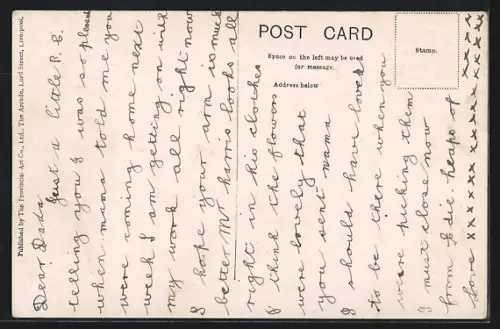 Published by The Provincial Art Co., Ltd., The Arcade, Lord Street, Liverpool.
POST CARD
Space on the left may be used
for message.
Address below
Stamp.
Dear Dada
Just a little P.C.
telling you I was so pleased
when mama told me you
were coming home next
week I am getting on with
my work all right now
I hope your arm is much
better Mr Harris looks all
right in his clothes
I think the flowers
were lovely that
you sent mama
I should have loved
to be there when you
were picking them
I must close now
from Edie heaps of
love x x x x x x x x x x
x x x x x x x x